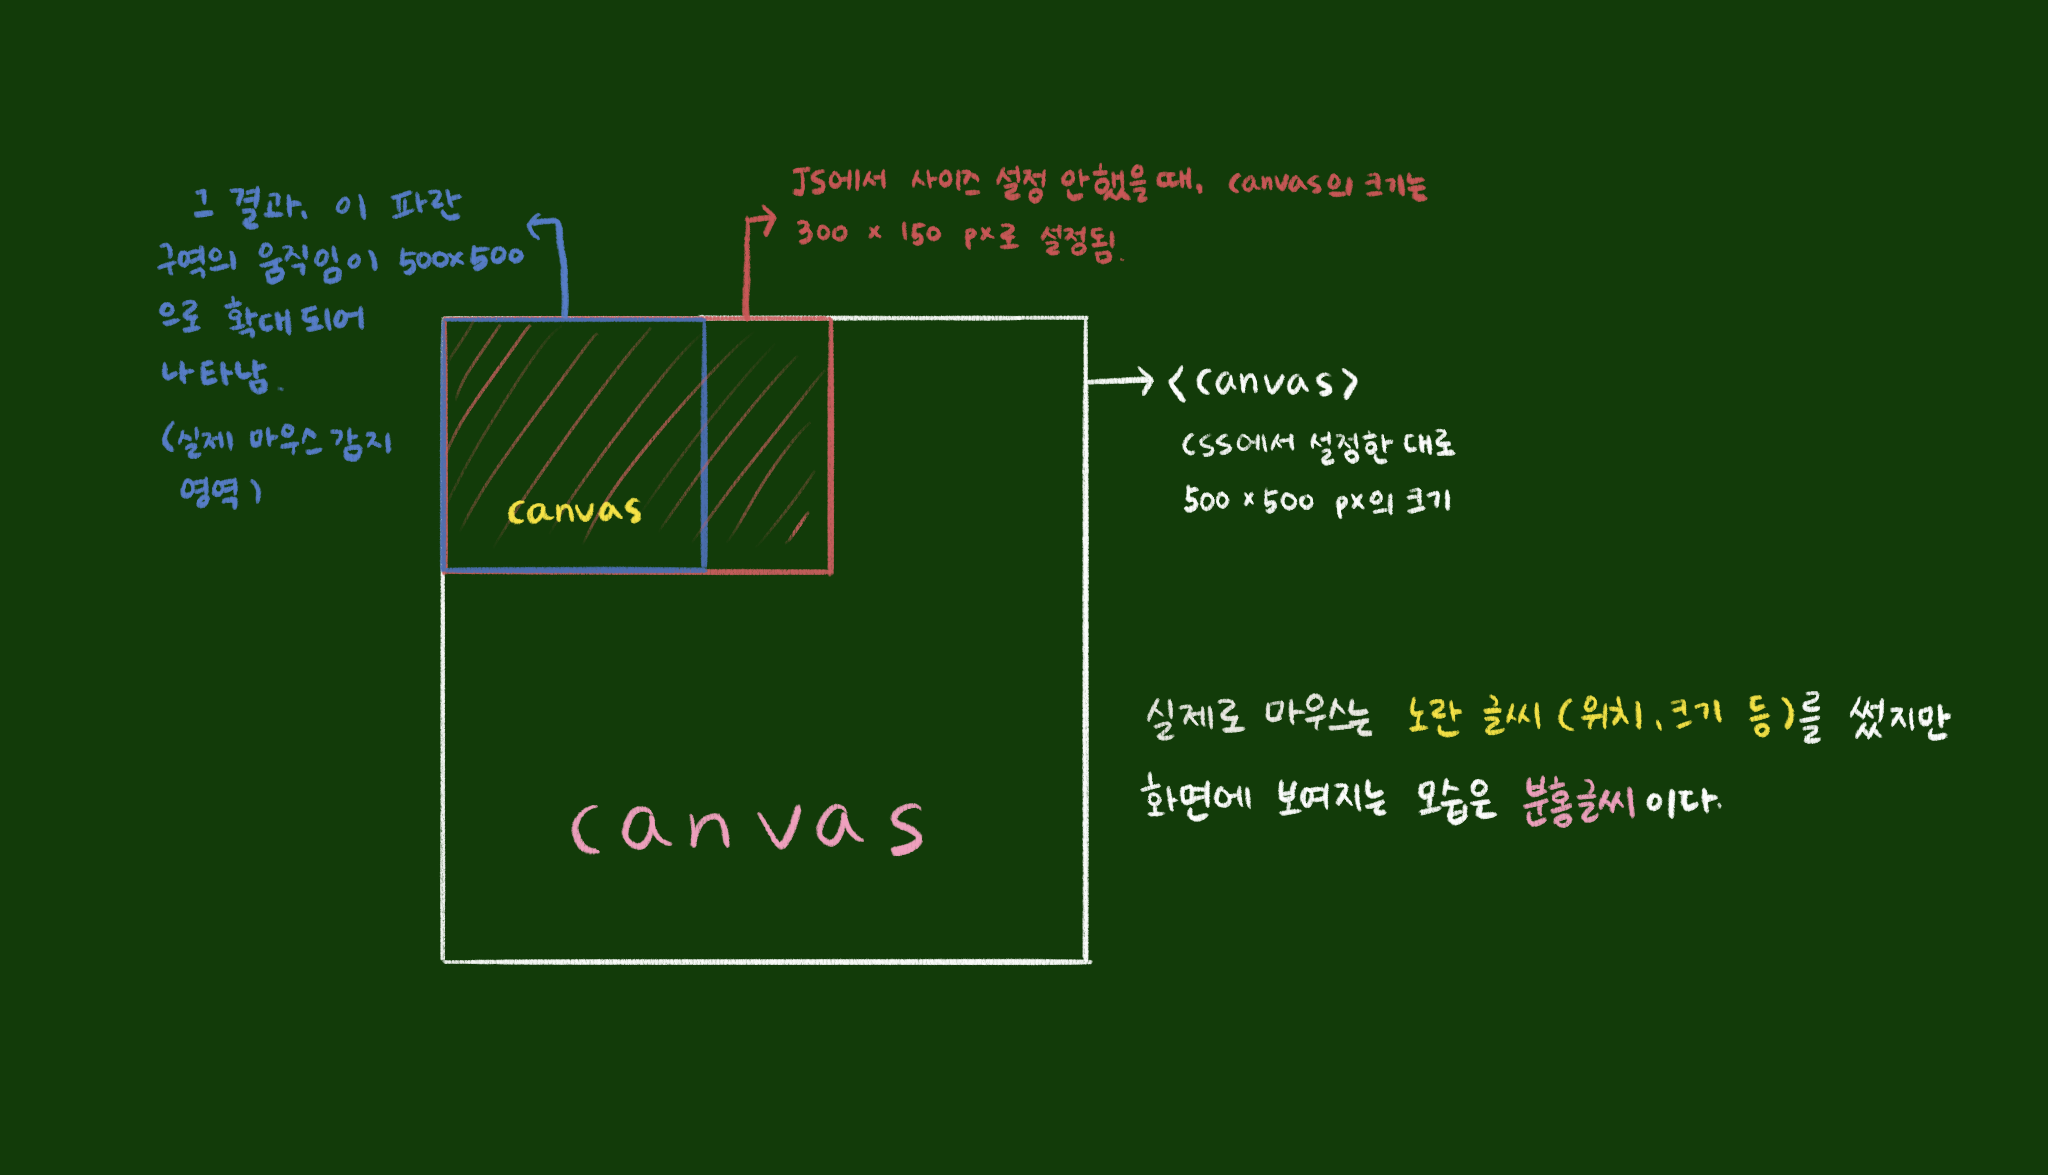 그 결과, 이 파란
구역의 움직임이 500×500
으로 확대 되어
나타남.
(실제 마우스 감지
영역)
JS에서 사이즈 설정 안했을때, canvas의 크기는
300 × 150 px로 설정됨.
<canvas>
CSS에서 설정한 대로
500 × 500 px의 크기
canvas
canvas
실제로 마우스는 노란 글씨 (위치, 크기 등)를 썼지만
화면에 보여지는 모습은 분홍글씨 이다.